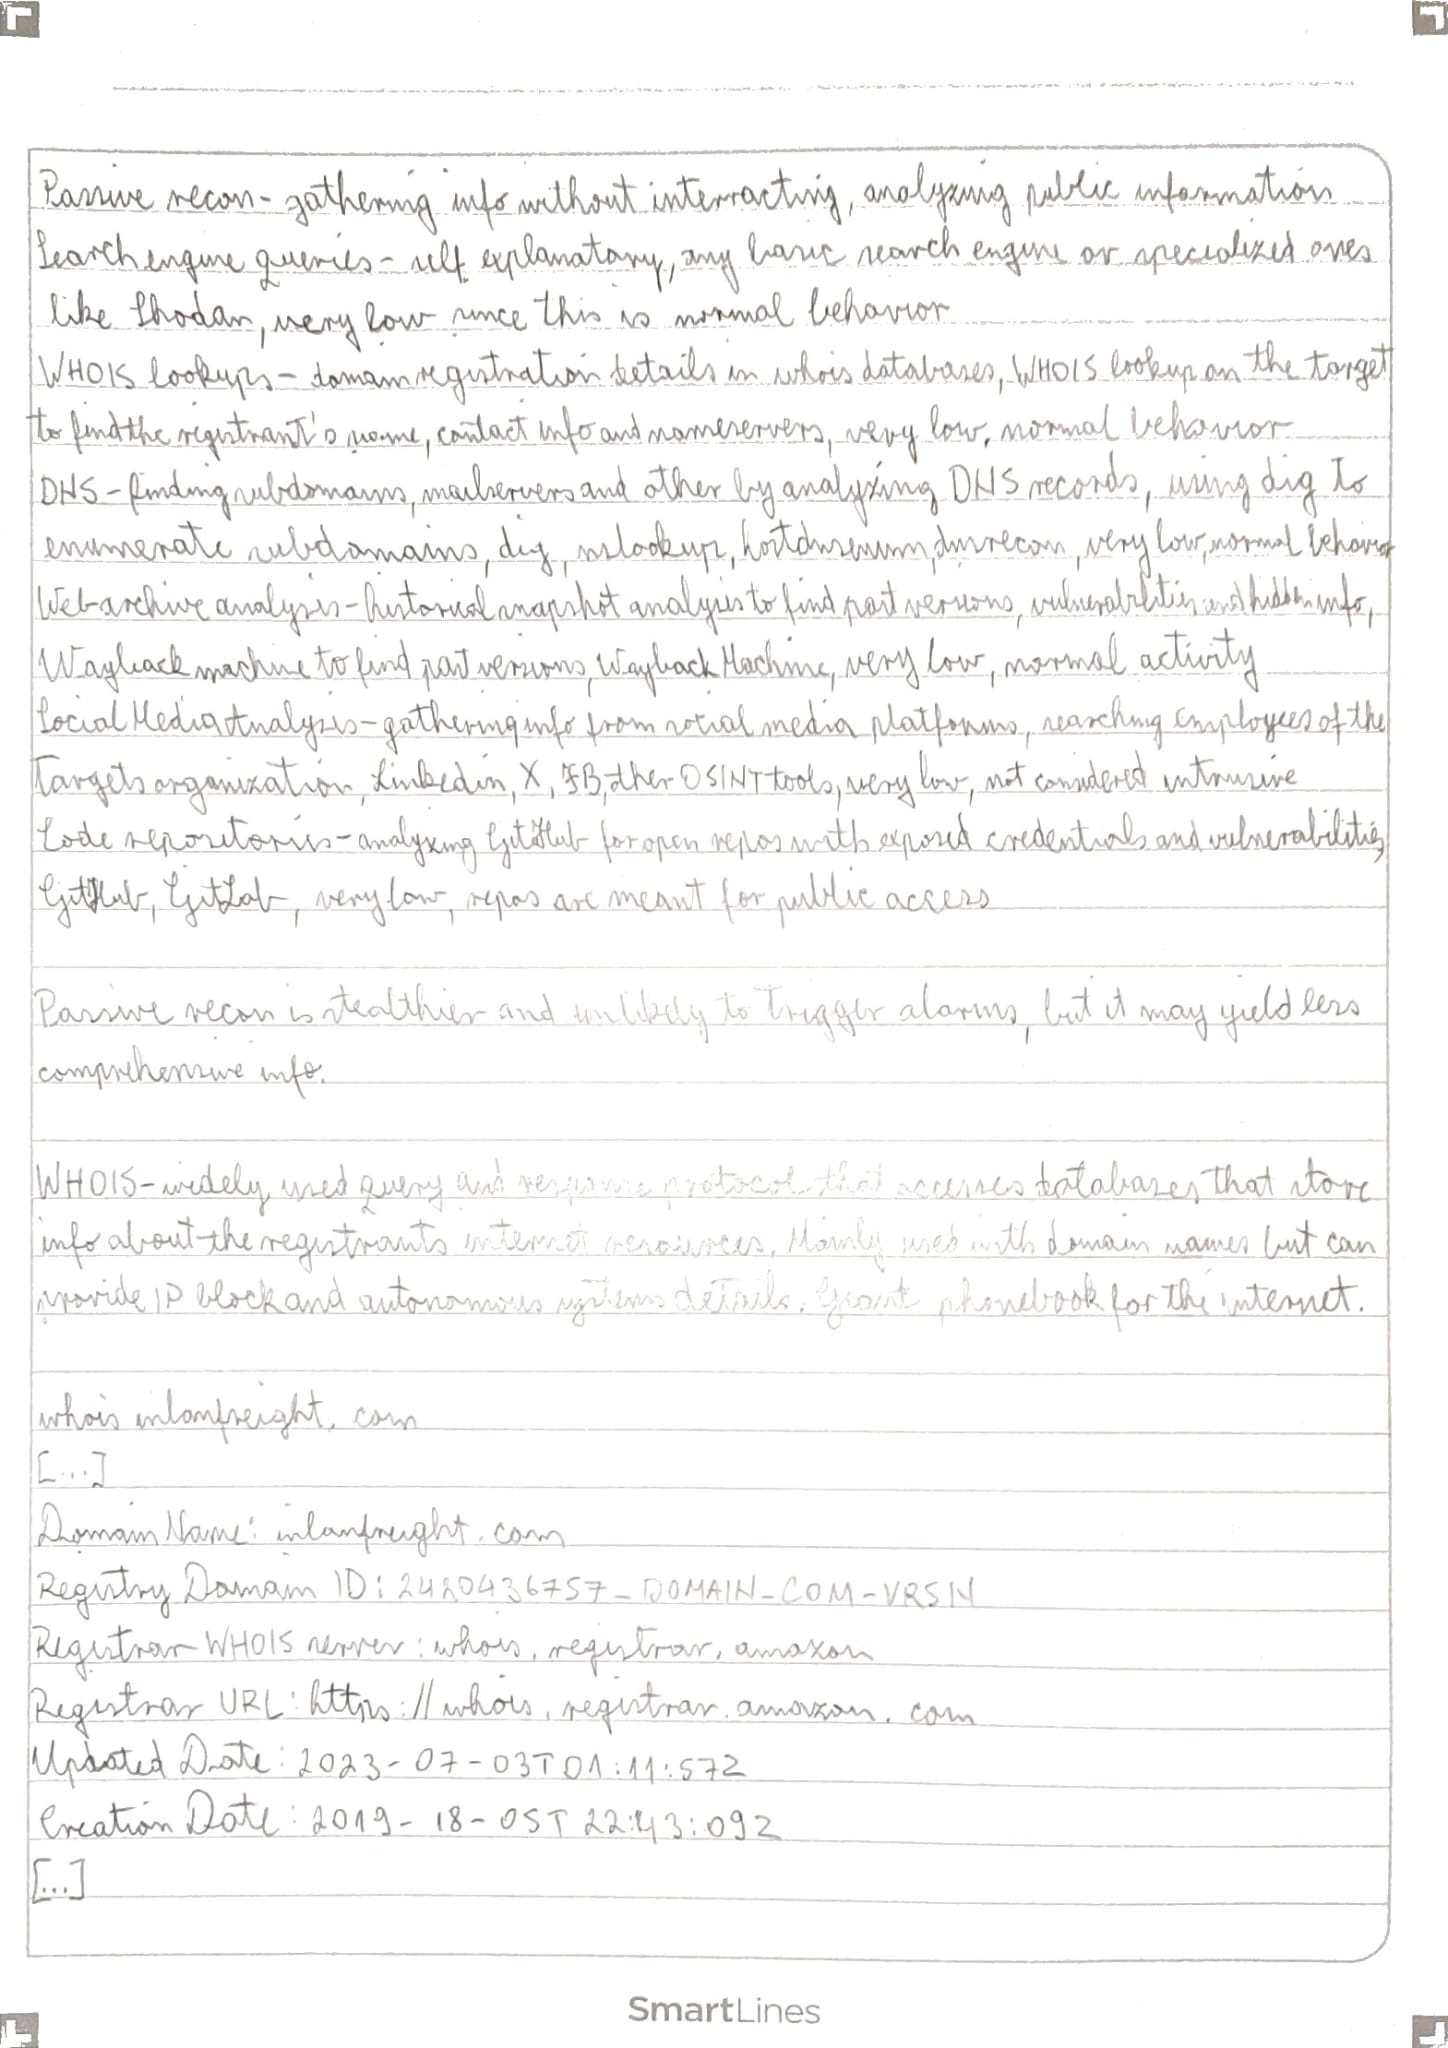 Passive recon - gathering info without interracting, analyzing public information
Search engine queries - self explanatory, any basic search engine or specialized ones
like Shodan, very low since this is normal behavior
WHOIS lookups - domain registration details in whois databases, WHOIS lookup on the target
to find the registrant's name, contact info and nameservers, very low, normal behavior
DNS - finding subdomains, mailservers and other by analyzing DNS records, using dig to
enumerate subdomains, dig, nslookup, host, dnsenum, dnsrecon, very low, normal behavior
Web archive analysis - historical snapshot analysis to find past versions, vulnerabilities and hidden info,
Wayback machine to find past versions, Wayback Machine, very low, normal activity
Social Media Analysis - gathering info from social media platforms, searching employees of the
targets organization, Linkedin, X, FB, other OSINT tools, very low, not considered intrusive
Code repositories - analyzing GitHub for open repos with exposed credentials and vulnerabilities,
GitHub, GitLab, very low, repos are meant for public access
Passive recon is stealthier and unlikely to trigger alarms, but it may yield less
comprehensive info.
WHOIS - widely used query and response protocol that accesses databases that store
info about the registrants internet resources. Mainly used with domain names but can
provide IP block and autonomous systems details. Giant phonebook for the internet.
whois inlanfreight.com
[...]
Domain Name: inlanfreight.com
Registry Domain ID: 2420436757_DOMAIN_COM-VRSN
Registrar WHOIS server: whois.registrar.amazon
Registrar URL: https://whois.registrar.amazon.com
Updated Date: 2023-07-03T01:11:57Z
Creation Date: 2019-18-05T22:43:09Z
[...]
SmartLines